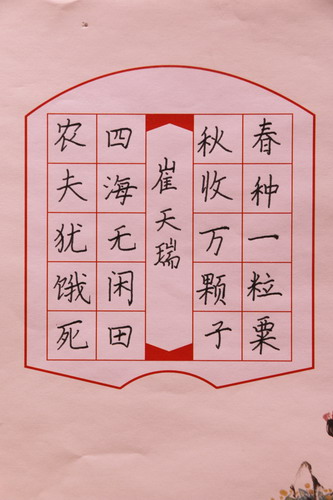 春种一粒粟
秋收万颗子
崔天瑞
四海无闲田
农夫犹饿死